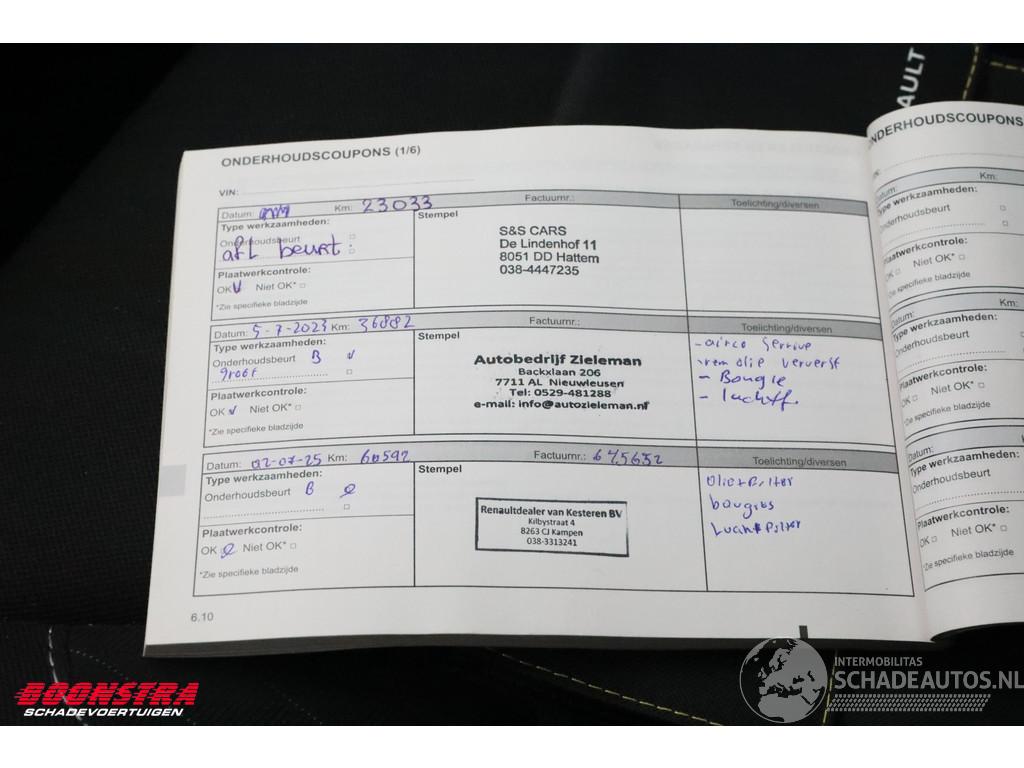 AULT
ONDERHOUDSCOUPONS (1/6)
VIN:
Datum: Km: 23033 Factuurnr.: Toelichting/diversen
Type werkzaamheden:
Onderhoudsbeurt
afl beurt.
Plaatwerkcontrole:
OK Niet OK*
*Zie specifieke bladzijde
Stempel
S&S CARS
De Lindenhof 11
8051 DD Hattem
038-4447235
Datum: 5-7-2023 Km: 36882 Factuurnr.: Toelichting/diversen
Type werkzaamheden:
Onderhoudsbeurt B
groot
Plaatwerkcontrole:
OK Niet OK*
*Zie specifieke bladzijde
Stempel
Autobedrijf Zieleman
Backxlaan 206
7711 AL Nieuwleusen
Tel: 0529-481288
e-mail: info@autozieleman.nl
- airco Service
- rem olie ververst
- Bougie
- luchtf.
Datum: 02-07-25 Km: 60592 Factuurnr.: 675652 Toelichting/diversen
Type werkzaamheden:
Onderhoudsbeurt B
Plaatwerkcontrole:
OK Niet OK*
*Zie specifieke bladzijde
Stempel
Renaultdealer van Kesteren BV
Kilbystraat 4
8263 CJ Kampen
038-3313241
Olie+Filter
bougies
Luchtfilter
6.10
NDERHOUDSCOUPONS
Datum: Km:
Type werkzaamheden:
Onderhoudsbeurt
Plaatwerkcontrole:
OK Niet OK*
*Zie specifieke bladzijde
Datum: Km:
Type werkzaamheden:
Onderhoudsbeurt
Plaatwerkcontrole:
OK Niet OK*
*Zie specifieke bladzijde
Datum:
Type werkzaamheden:
Onderhoudsbeurt
Plaatwerkcontrole:
OK Niet OK*
*Zie specifieke bladzijde
BOONSTRA
SCHADEVOERTUIGEN
INTERMOBILITAS
SCHADEAUTOS.NL